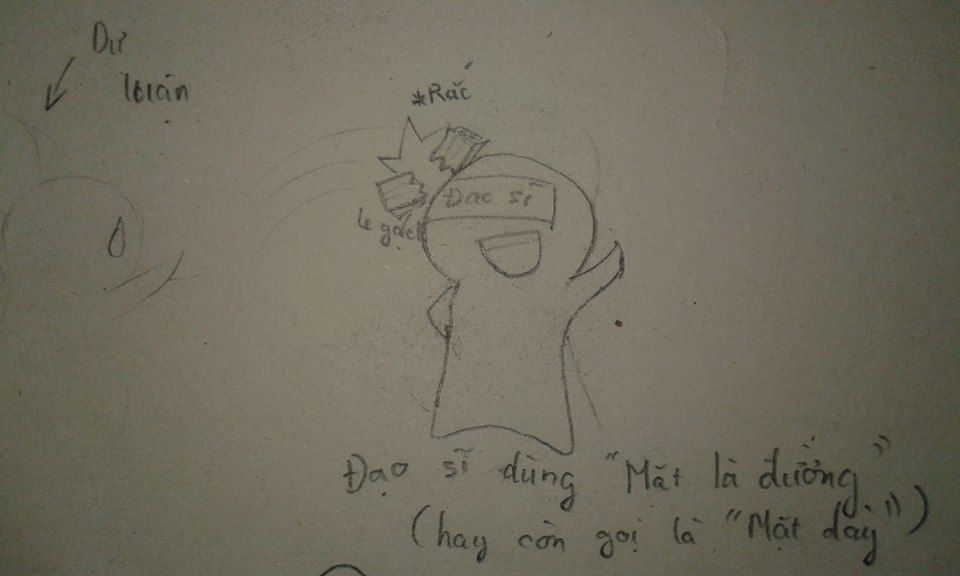 Dư
luận
*Rắc
Đạo sĩ
gạch
Đạo sĩ dùng "Mặt là đường"
(hay còn gọi là "Mặt dày")